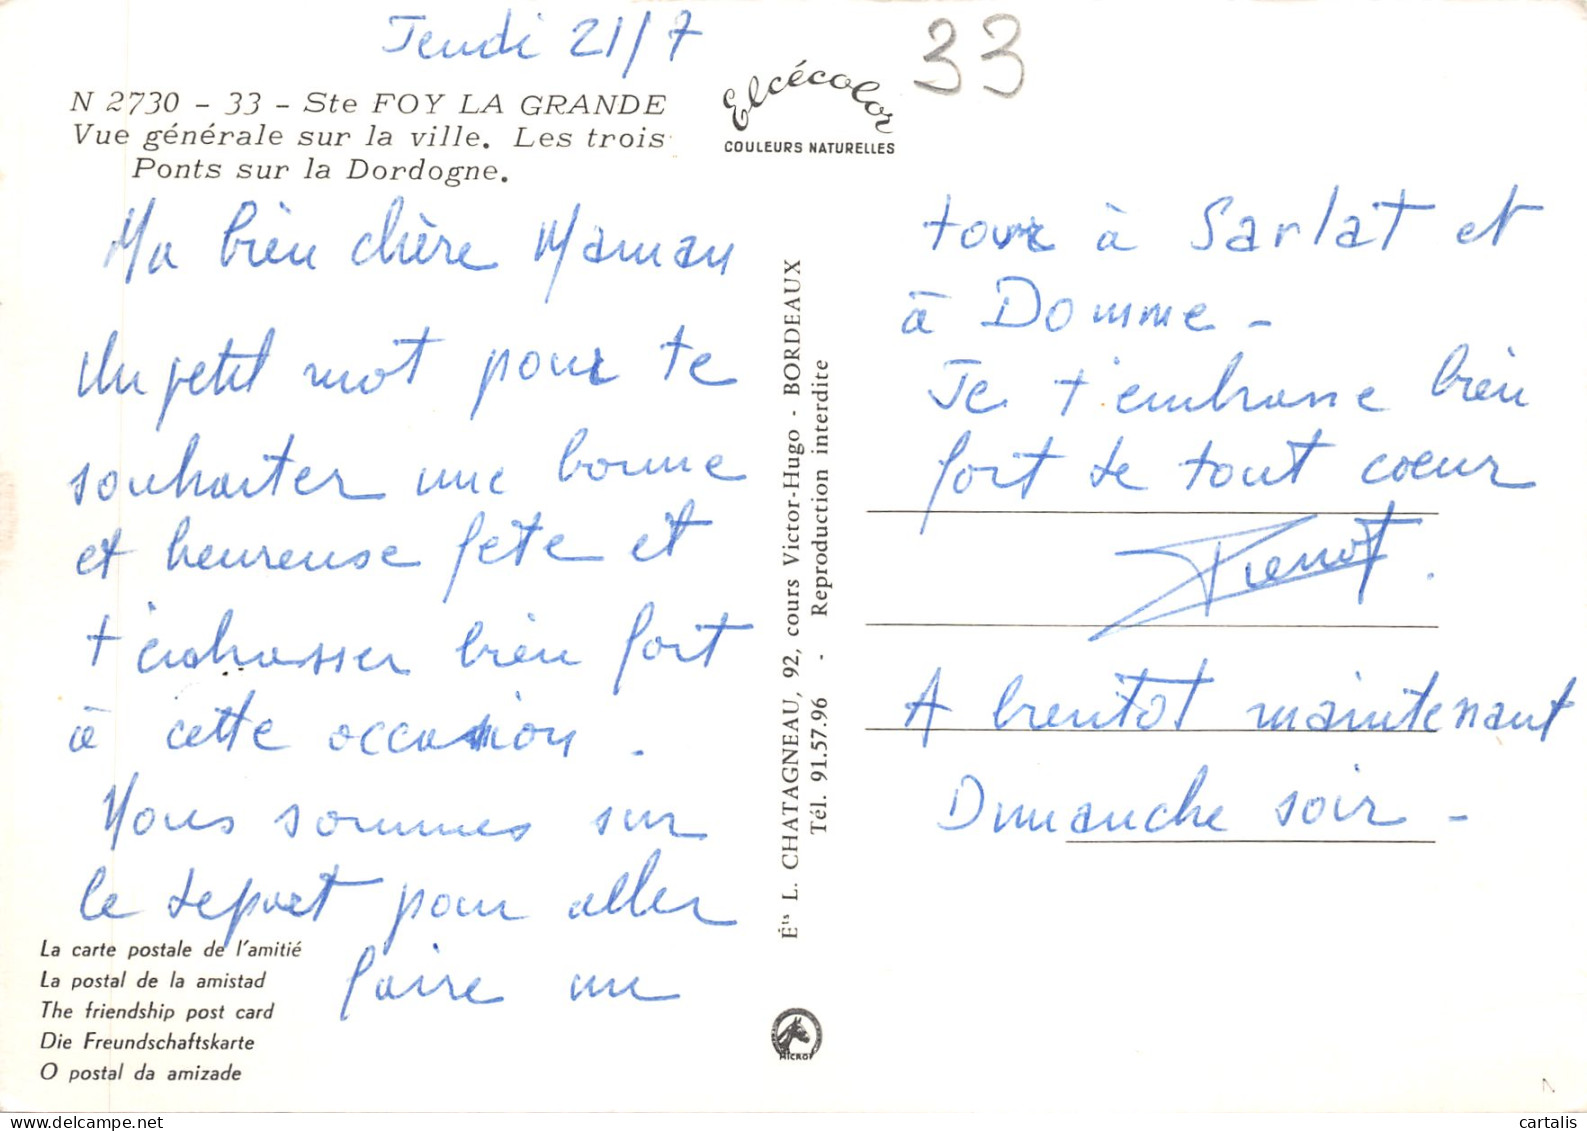 Jeudi 21/7
33
N 2730 - 33 - Ste FOY LA GRANDE
Vue générale sur la ville. Les trois
Ponts sur la Dordogne.
Elcécolor
COULEURS NATURELLES
Ma bien chère Maman
Un petit mot pour te
souhaiter une bonne
et heureuse fete et
t'embrasser bien fort
à cette occasion.
Nous sommes sur
le depart pour aller
faire un
La carte postale de l'amitié
La postal de la amistad
The friendship post card
Die Freundschaftskarte
O postal da amizade
Éts L. CHATAGNEAU, 92, cours Victor-Hugo - BORDEAUX
Tél. 91.57.96 - Reproduction interdite
MICRO
tour à Sarlat et
à Domme -
Je t'embrasse bien
fort de tout coeur
A bientot maintenant
Dimanche soir -
N
cartalis